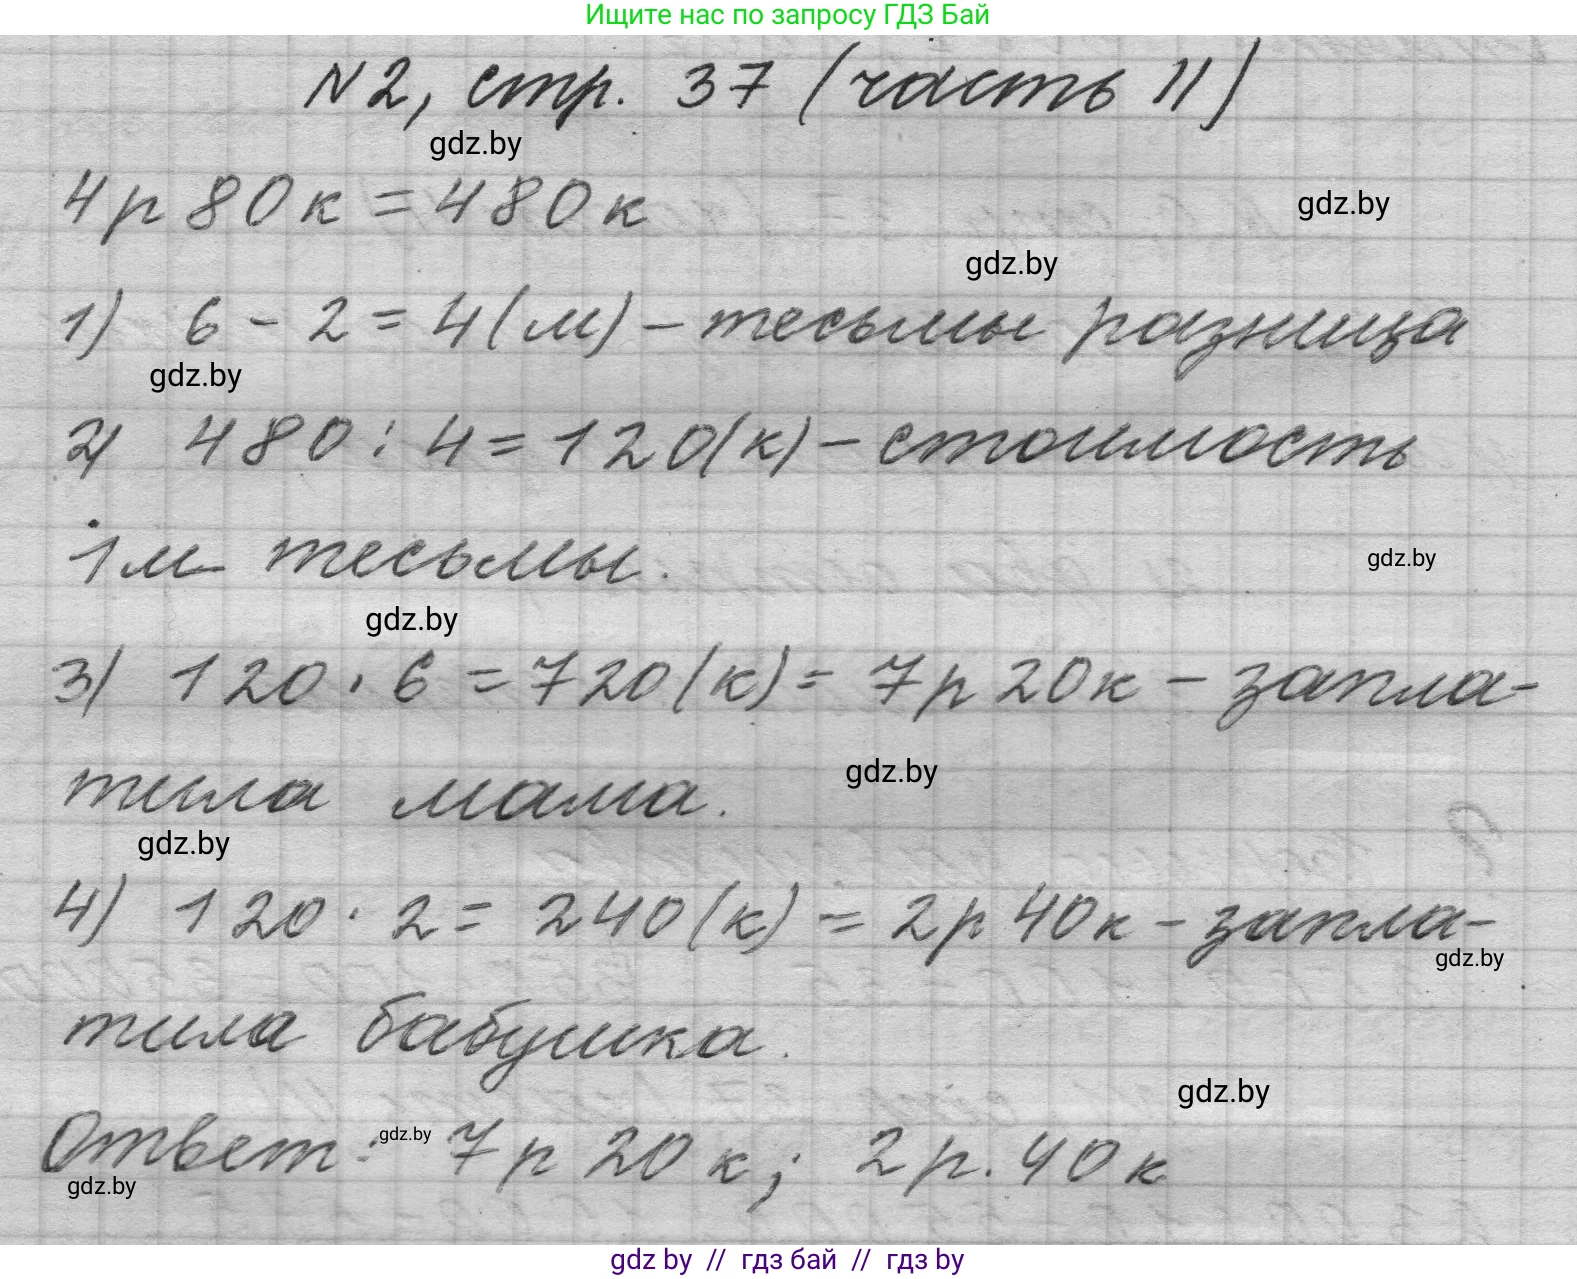 Ищите нас по запросу ГДЗ Бай
N2, стр. 37 (часть II)
gdz.by
4р 80к = 480к
gdz.by
gdz.by
1) 6 - 2 = 4(м) - тесьмы разница
gdz.by
2) 480 : 4 = 120(к) - стоимость
1м тесьмы.
gdz.by
gdz.by
3) 120 · 6 = 720(к) = 7р 20к - запла-
тила мама.
gdz.by
gdz.by
4) 120 · 2 = 240(к) = 2р 40к - запла-
gdz.by
тила бабушка.
gdz.by
Ответ: 7р 20 к; 2р. 40к
gdz.by
gdz.by
gdz.by // гдз бай // гдз by